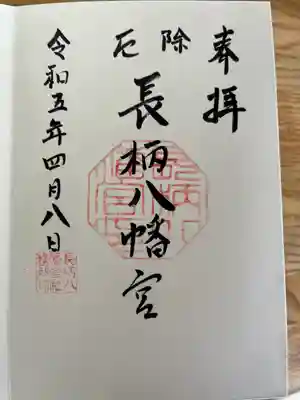 奉拝
除厄
長柄八幡宮
令和五年四月八日